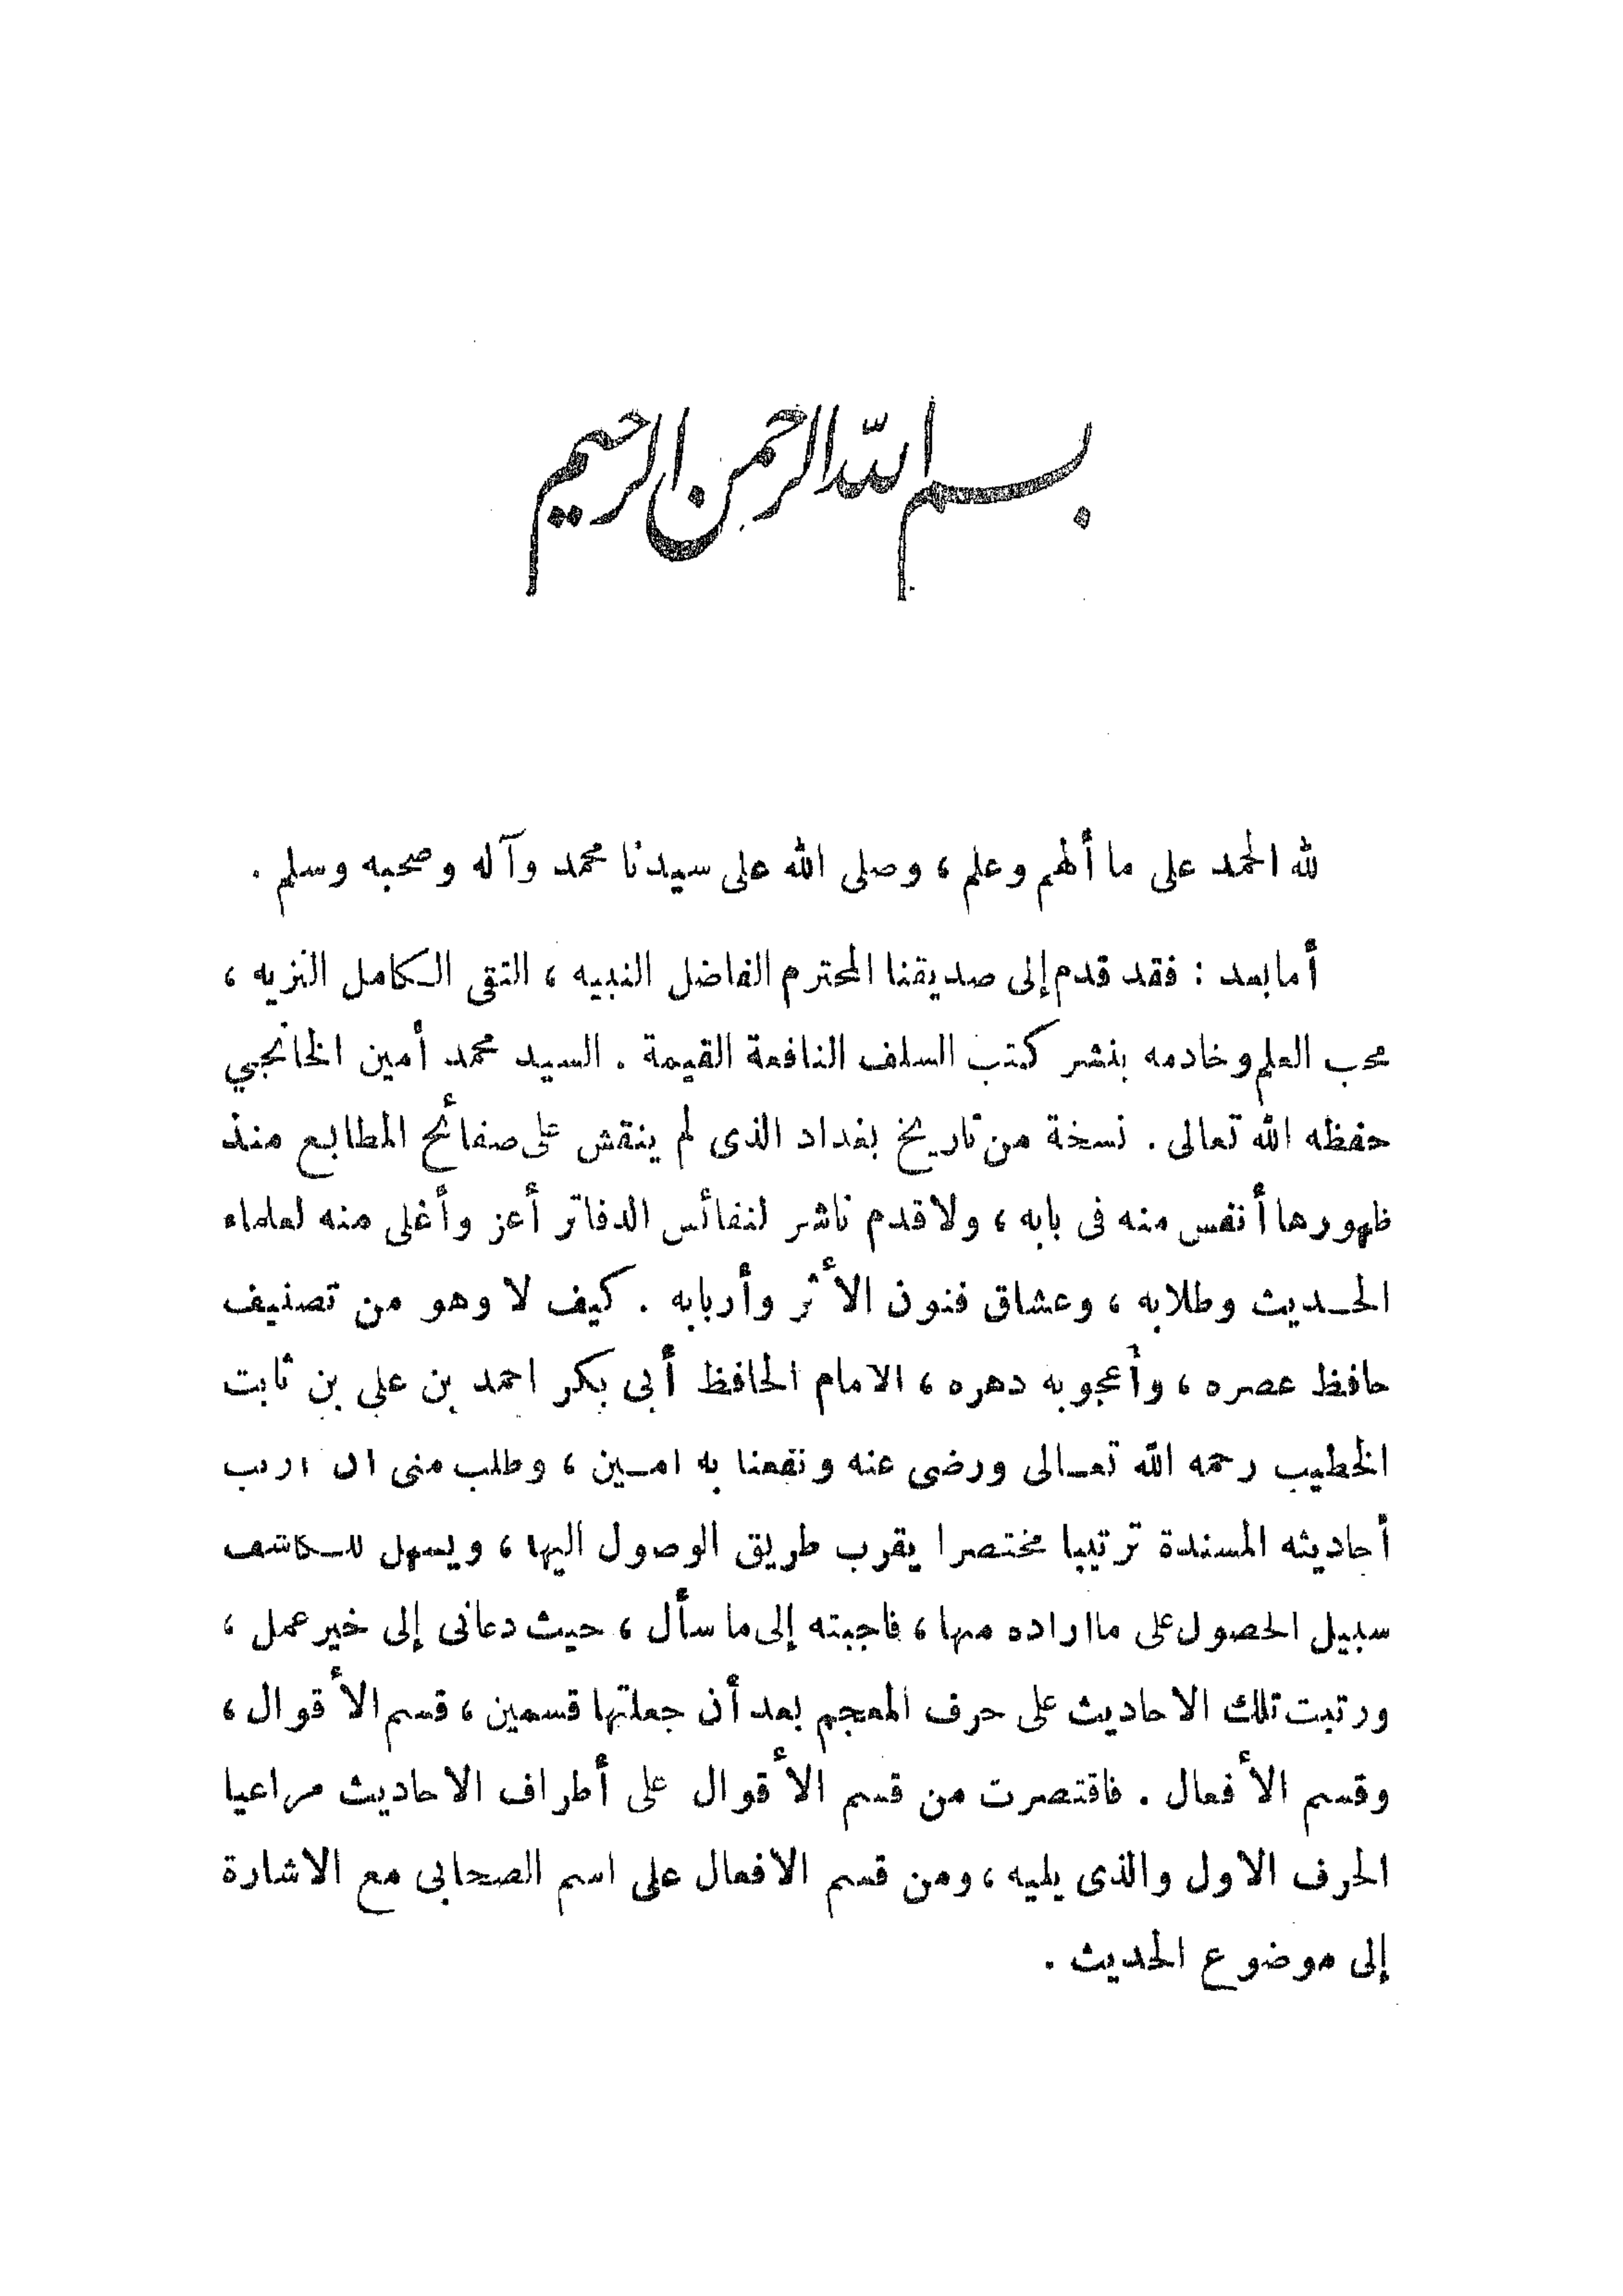 بسم الله الرحمن الرحيم
لله الحمد على ما ألهم وعلم ، وصلى الله على سيدنا محمد وآله وصحبه وسلم .
أما بعد : فقد قدم إلى صديقنا المحترم الفاضل النبيه ، التقى الكامل النزيه ،
محب العلم وخادمه بنشر كتب السلف النافعة القيمة . السيد محمد أمين الخانجي
حفظه الله تعالى . نسخة من تاريخ بغداد الذى لم ينقش على صفائح المطابع منذ
ظهورها أنفس منه فى بابه ، ولا قدم ناشر لنفائس الدفاتر أعز وأغلى منه لعلماء
الحديث وطلابه ، وعشاق فنون الأثر وأربابه . كيف لا وهو من تصنيف
حافظ عصره ، وأعجوبه دهره ، الامام الحافظ أبى بكر احمد بن على بن ثابت
الخطيب رحمه الله تعالى ورضى عنه ونفعنا به امين ، وطلب منى ان ارتب
أحاديثه المسندة ترتيبا مختصرا يقرب طريق الوصول اليها ، ويسهل للكاشف
سبيل الحصول على ما اراده منها ، فاجبته إلى ما سأل ، حيث دعانى إلى خير عمل ،
ورتبت تلك الاحاديث على حرف المعجم بعد أن جعلتها قسمين ، قسم الأقوال ،
وقسم الأفعال . فاقتصرت من قسم الأقوال على أطراف الاحاديث مراعيا
الحرف الاول والذى يليه ، ومن قسم الافعال على اسم الصحابى مع الاشارة
إلى موضوع الحديث .